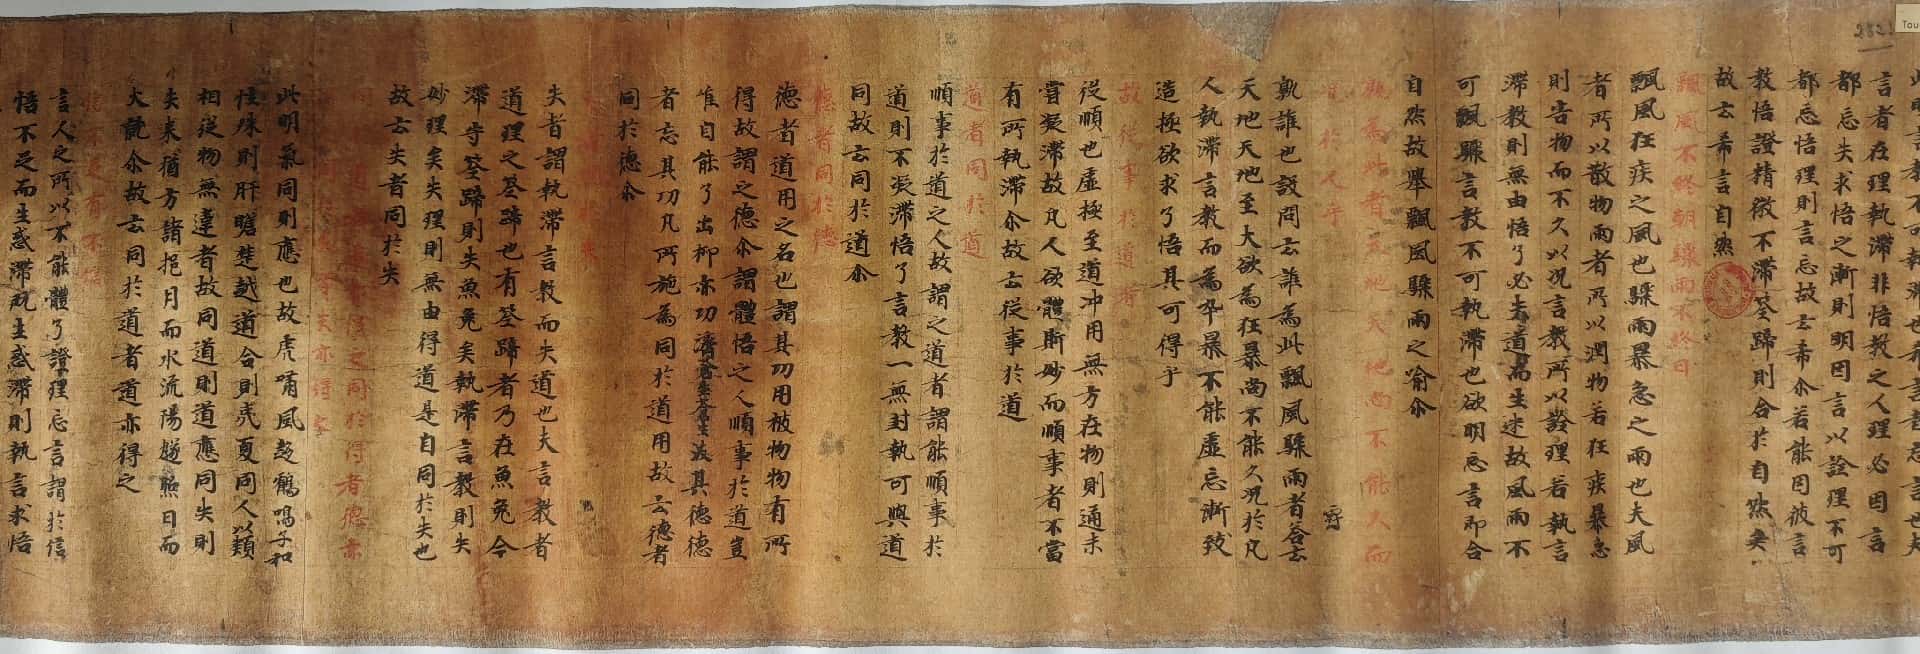 言者在理執滯非悟教之人理必因言
都忘失求悟之漸則明因言以詮理不可
都忘悟理則言忘故云希尒若能因彼言
教悟證精微不滯筌蹄則合於自然矣
故云希言自然
飄風不終朝驟雨不終日
飄風狂疾之風也驟雨暴急之雨也夫風
者所以散物雨者所以潤物若狂疾暴急
則害物而不久以况言教所以證理若執言
滯教則無由悟了必失道而生迷故風雨不
可飄驟言教不可執滯也欲明忘言即合
自然故舉飄風驟雨之喻尒
孰為此者天地天地尚不能久而
况於人乎
孰誰也設問云誰為此飄風驟雨者答云
天地天地至大欲為狂暴尚不能久况於凡
人執滯言教而為卒暴不能虛忘漸致
造極欲求了悟其可得乎
故從事於道者
從順也虛極至道冲用無方在物則通未
嘗凝滯故凡人欲體斯妙而順事者不當
有所執滯尒故云從事於道
道者同於道
順事於道之人故謂之道者謂能順事於
道則不凝滯悟了言教一無封執可與道
同故云同於道尒
德者同於德
德者道用之名也謂其功用被物物有所
得故謂之德尒謂體悟之人順事於道豈
唯自能了出抑亦功濟蒼生蒼生被其德德
者忘其功凡所施為同於道用故云德者
同於德尒
失者謂執滯言教而失道也夫言教者
道理之筌蹄也有筌蹄者乃在魚兔今
滯守筌蹄則失魚兔矣執滯言教則失
妙理矣失理則無由得道是自同於失也
故云失者同於失
此明氣同則應也故虎嘯風起鶴鳴子和
情殊則肝膽楚越道合則夷夏同人以類
相從物無違者故同道則道應同失則
失來猶方諸挹月而水流陽燧照日而
火就尒故云同於道者道亦得之
信不足有不信
言人之所以不能體了證理忘言謂於信
悟不足而生惑滯既生惑滯則執言求悟